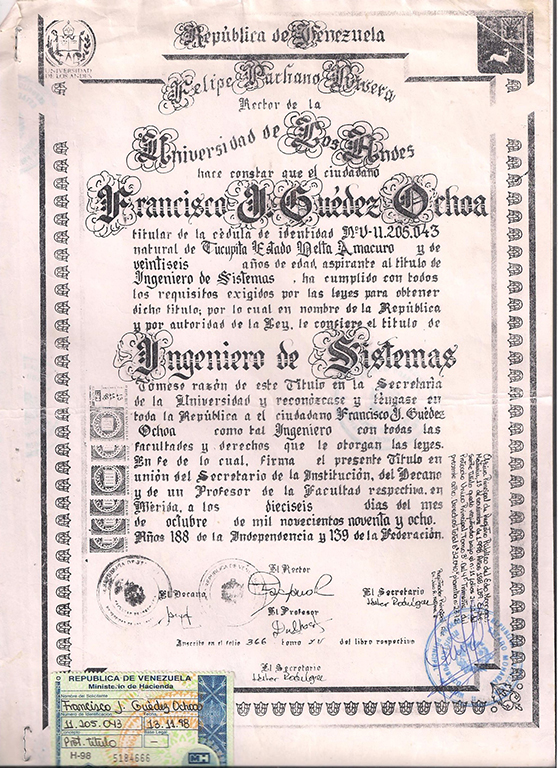 UNIVERSIDAD
DE LOS ANDES
República de Venezuela
Felipe Pachano Rivera
Rector de la
Universidad de Los Andes
hace constar que el ciudadano
Francisco J. Guédez Ochoa
titular de la cédula de identidad NºV-11.205.043
natural de Tucupita Estado Delta Amacuro y de
veintiseis años de edad, aspirante al título de
Ingeniero de Sistemas , ha cumplido con todos
los requisitos exigidos por las leyes para obtener
dicho título; por lo cual en nombre de la República
y por autoridad de la Ley, le confiere el título de
Ingeniero de Sistemas
Tómese razón de este Título en la Secretaría
de la Universidad y reconózcase y téngase en
toda la República a el ciudadano Francisco J. Guédez
Ochoa como tal Ingeniero con todas las
facultades y derechos que le otorgan las leyes.
En fe de lo cual, firma el presente Título en
unión del Secretario de la Institución, del Decano
y de un Profesor de la Facultad respectiva, en
Mérida, a los dieciseis días del mes
de octubre de mil novecientos noventa y ocho.
Años 188 de la Independencia y 139 de la Federación.
El Rector
El Decano
El Secretario
El Profesor
Inscrito en el folio 366 tomo XV del libro respectivo
El Secretario
REPUBLICA DE VENEZUELA
Ministerio de Hacienda
Francisco J. Guédez Ochoa
11.205.043 13.11.98
Post. título
H-98 5184666